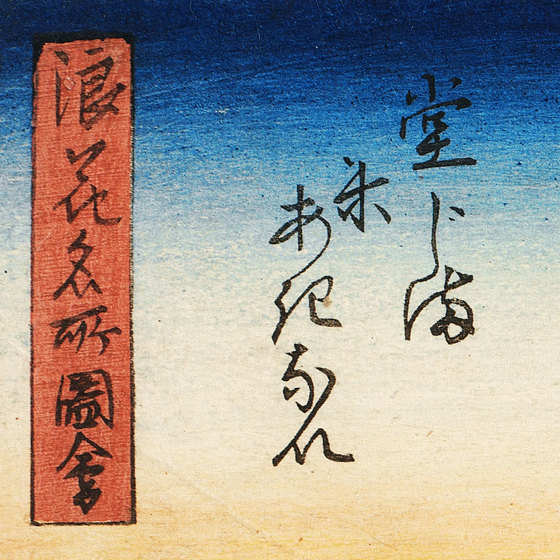 堂じま
米あきない
浪花名所圖會